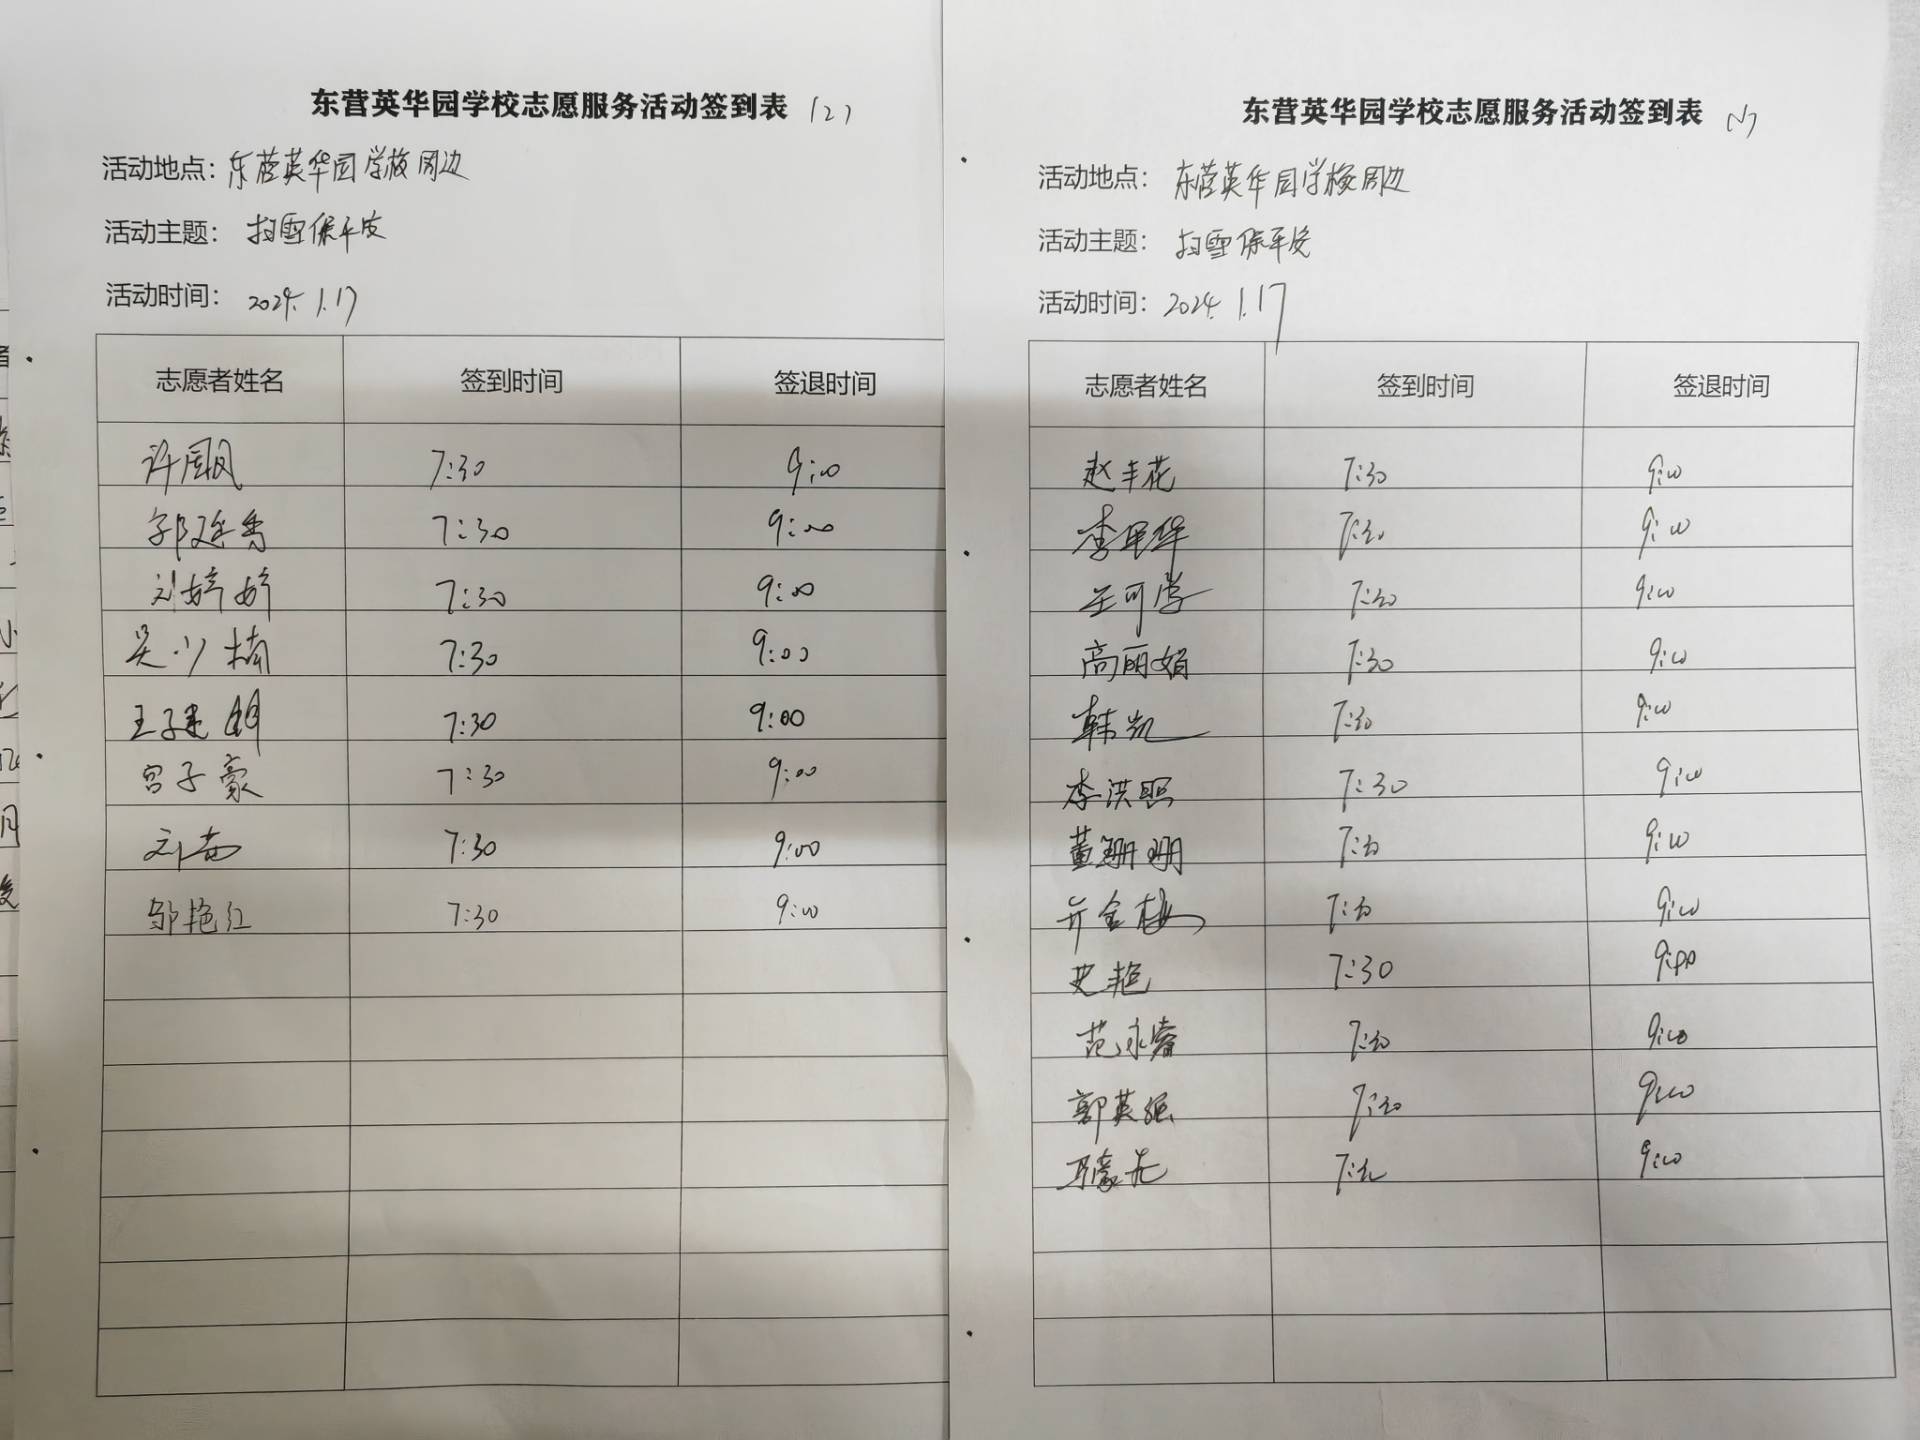 东营英华园学校志愿服务活动签到表 (2)
活动地点：东营英华园学校周边
活动主题：扫雪保平安
活动时间：2024.1.17
志愿者姓名 签到时间 签退时间
7:30 9:00
郭延秀 7:30 9:00
刘婷婷 7:30 9:00
吴少楠 7:30 9:00
王子建 7:30 9:00
宫子豪 7:30 9:00
刘 7:30 9:00
邹艳红 7:30 9:00
东营英华园学校志愿服务活动签到表 (1)
活动地点：东营英华园学校周边
活动主题：扫雪保平安
活动时间：2024.1.17
志愿者姓名 签到时间 签退时间
赵丰花 7:30 9:00
李军华 7:30 9:00
王可学 7:30 9:00
高丽娟 7:30 9:00
韩凯 7:30 9:00
李洪照 7:30 9:00
董珊珊 7:30 9:00
金梅 7:30 9:00
史艳 7:30 9:00
范永睿 7:30 9:00
郭英强 7:30 9:00
7:30 9:00